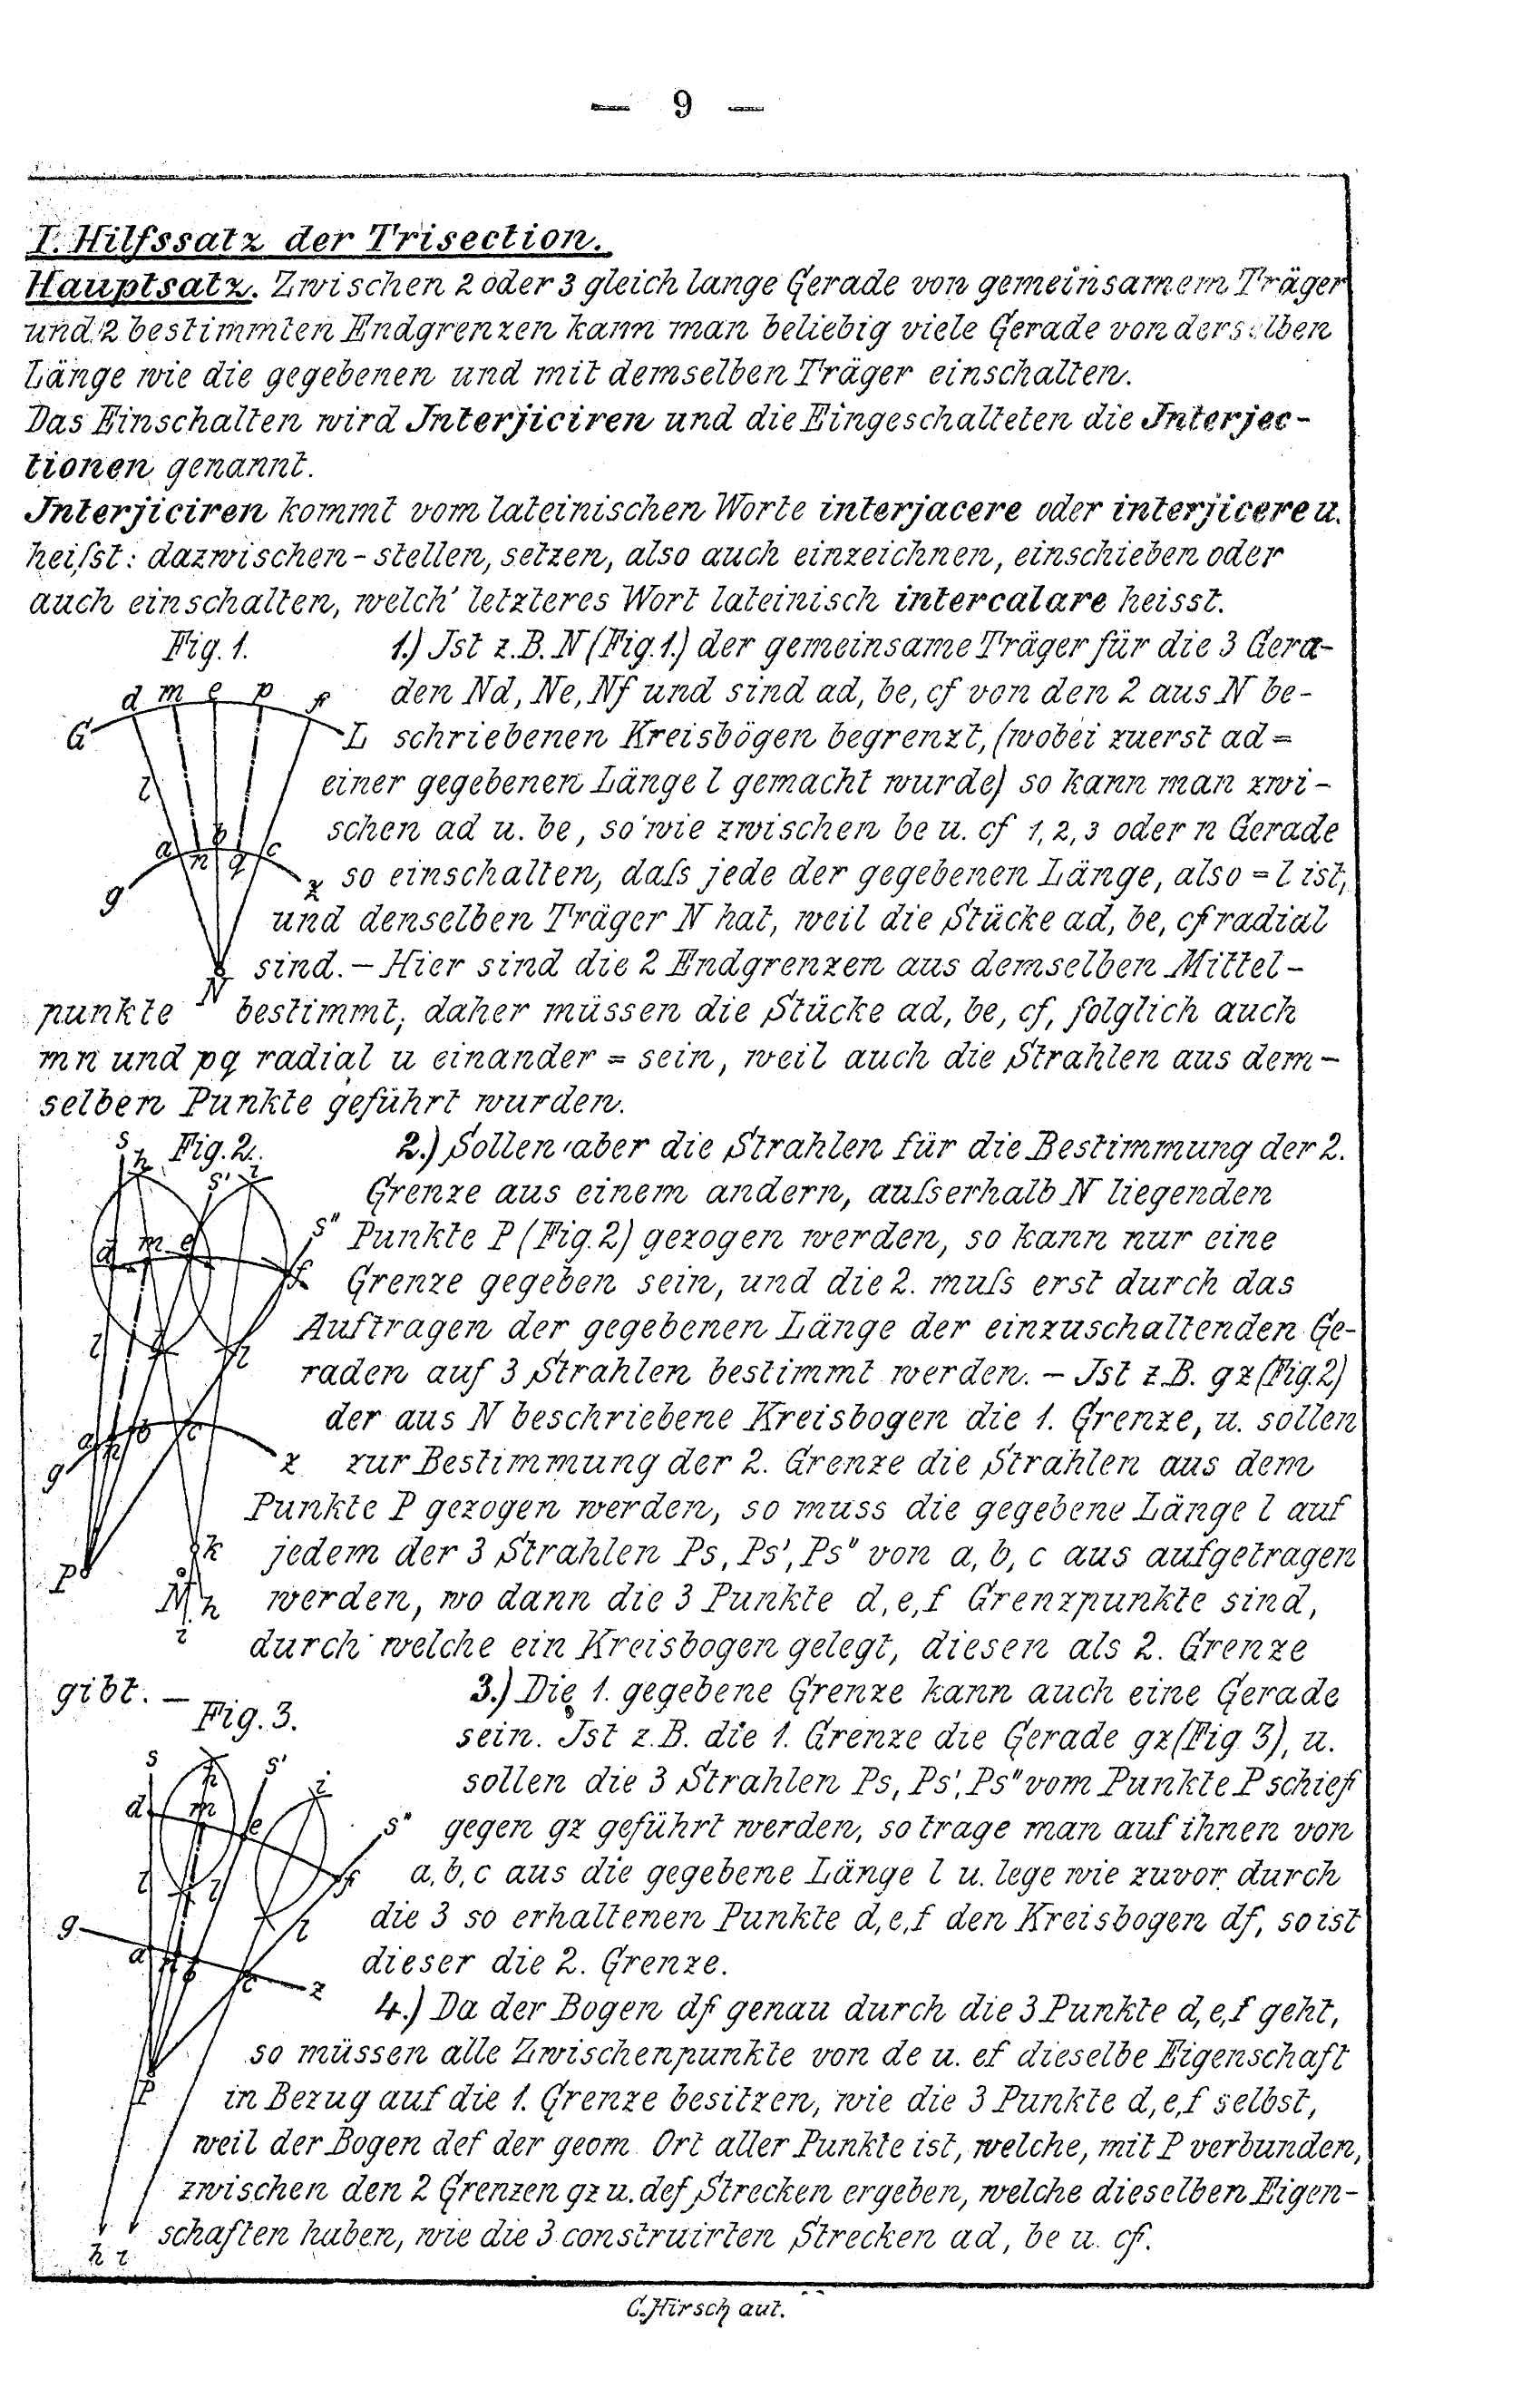 — 9 —
I. Hilfssatz der Trisection.
Hauptsatz. Zwischen 2 oder 3 gleich lange Gerade von gemeinsamem Träger
und 2 bestimmten Endgrenzen kann man beliebig viele Gerade von derselben
Länge wie die gegebenen und mit demselben Träger einschalten.
Das Einschalten wird Interjiciren und die Eingeschalteten die Interjec-
tionen genannt.
Interjiciren kommt vom lateinischen Worte interjacere oder interjicere u.
heißt: dazwischen-stellen, setzen, also auch einzeichnen, einschieben oder
auch einschalten, welch' letzteres Wort lateinisch intercalare heisst.
Fig. 1.
1.) Ist z.B. N (Fig. 1.) der gemeinsame Träger für die 3 Gera-
den Nd, Ne, Nf und sind ad, be, cf von den 2 aus N be-
schriebenen Kreisbögen begrenzt, (wobei zuerst ad =
einer gegebenen Länge l gemacht wurde) so kann man zwi-
schen ad u. be, so wie zwischen be u. cf 1, 2, 3 oder n Gerade
so einschalten, daß jede der gegebenen Länge, also = l ist,
und denselben Träger N hat, weil die Stücke ad, be, cf radial
sind. — Hier sind die 2 Endgrenzen aus demselben Mittel-
punkte N bestimmt; daher müssen die Stücke ad, be, cf, folglich auch
mn und pq radial u einander = sein, weil auch die Strahlen aus dem-
selben Punkte geführt wurden.
d m e p f
G L
l
a b c
n q
g z
N
Fig. 2.
2.) Sollen aber die Strahlen für die Bestimmung der 2.
Grenze aus einem andern, außerhalb N liegenden
Punkte P (Fig. 2) gezogen werden, so kann nur eine
Grenze gegeben sein, und die 2. muß erst durch das
Auftragen der gegebenen Länge der einzuschaltenden Ge-
raden auf 3 Strahlen bestimmt werden. — Ist z.B. gz (Fig. 2)
der aus N beschriebene Kreisbogen die 1. Grenze, u. sollen
zur Bestimmung der 2. Grenze die Strahlen aus dem
Punkte P gezogen werden, so muss die gegebene Länge l auf
jedem der 3 Strahlen Ps, Ps', Ps'' von a, b, c aus aufgetragen
werden, wo dann die 3 Punkte d, e, f Grenzpunkte sind,
durch welche ein Kreisbogen gelegt, diesen als 2. Grenze
gibt. —
s h s' i
s''
d m e f
l l l
a n b c
g z
k
P N h
i
Fig. 3.
3.) Die 1. gegebene Grenze kann auch eine Gerade
sein. Ist z.B. die 1. Grenze die Gerade gz (Fig 3), u.
sollen die 3 Strahlen Ps, Ps', Ps'' vom Punkte P schief
gegen gz geführt werden, so trage man auf ihnen von
a, b, c aus die gegebene Länge l u. lege wie zuvor durch
die 3 so erhaltenen Punkte d, e, f den Kreisbogen df, so ist
dieser die 2. Grenze.
4.) Da der Bogen df genau durch die 3 Punkte d, e, f geht,
so müssen alle Zwischenpunkte von de u. ef dieselbe Eigenschaft
in Bezug auf die 1. Grenze besitzen, wie die 3 Punkte d, e, f selbst,
weil der Bogen def der geom. Ort aller Punkte ist, welche, mit P verbunden,
zwischen den 2 Grenzen gz u. def Strecken ergeben, welche dieselben Eigen-
schaften haben, wie die 3 construirten Strecken ad, be u. cf.
s h s' i
d m e s''
l l f
g l
a n b c z
P
h i
C. Hirsch aut.